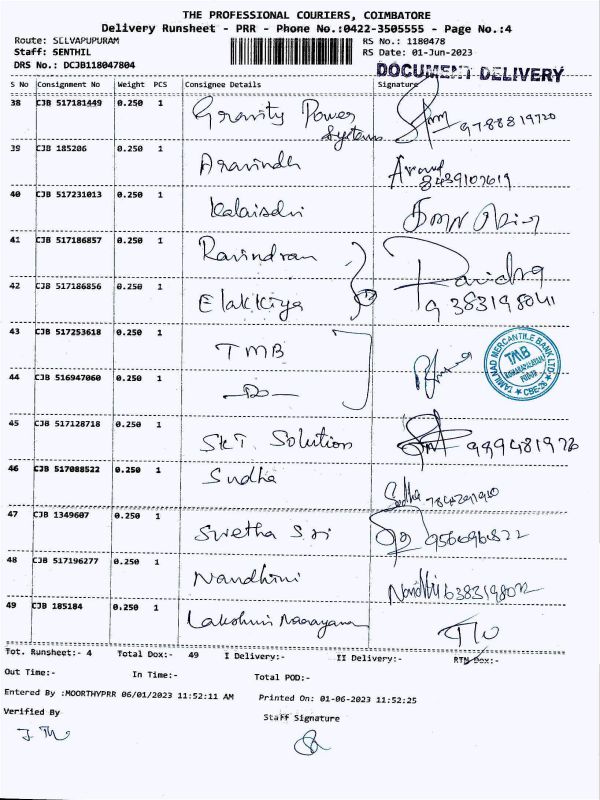 THE PROFESSIONAL COURIERS, COIMBATORE
Delivery Runsheet - PRR - Phone No.:0422-3505555 - Page No.:4
Route: SELVAPUPURAM
RS No.: 1180478
Staff: SENTHIL
RS Date: 01-Jun-2023
DRS No.: DCJB118047804
DOCUMENT DELIVERY
S No Consignment No Weight PCS Consignee Details Signature
38 CJB 517181449 0.250 1 Gravity Power Systems 9788819720
39 CJB 185206 0.250 1 Aravindh Aravind 8439107619
40 CJB 517231013 0.250 1 Kalaiselvi
41 CJB 517186857 0.250 1 Ravindran
42 CJB 517186856 0.250 1 Elakkiya
43 CJB 517253618 0.250 1 TMB
TAMILNAD MERCANTILE BANK LTD. TMB CBE-26
44 CJB 516947060 0.250 1 -Do-
45 CJB 517128718 0.250 1 SKT. Solution
46 CJB 517088522 0.250 1 Sudha Sudha
47 CJB 1349607 0.250 1 Swetha Sri
48 CJB 517196277 0.250 1 Nandhini Nandhi
49 CJB 185184 0.250 1 Lakshmi Naarayana
Tot. Runsheet:- 4 Total Dox:- 49 I Delivery:- II Delivery:- RTN Dox:-
Out Time:- In Time:- Total POD:-
Entered By :MOORTHYPRR 06/01/2023 11:52:11 AM Printed On: 01-06-2023 11:52:25
Verified By Staff Signature